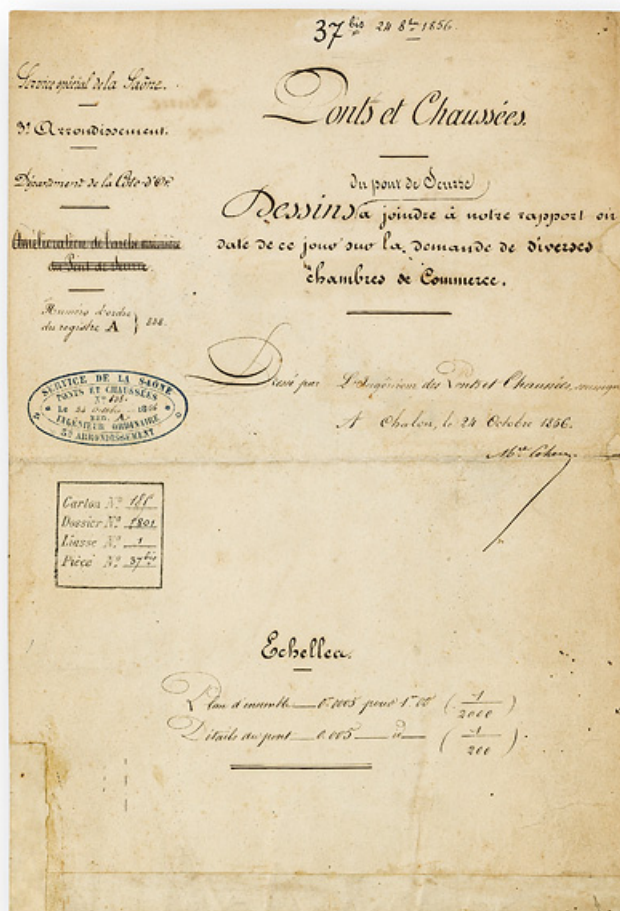 37 bis 24 8bre 1856.
Service spécial de la Saône.
3e Arrondissement.
Département de la Côte-d'Or.
Amélioration de l'arche marinière
du Pont de Seurre.
Numéro d'ordre
du registre A
SERVICE DE LA SAÔNE
PONTS ET CHAUSSÉES
Le 24 Octobre 1856
REG. A.
INGÉNIEUR ORDINAIRE
3e ARRONDISSEMENT
Carton No
Dossier No 1801
Liasse No 1
Pièce No 37 bis
Ponts et Chaussées.
du pont de Seurre
Dessins à joindre à notre rapport en
date de ce jour sur la demande de diverses
chambres de Commerce.
Dressé par L'Ingénieur des Ponts et Chaussées,
A Chalon, le 24 Octobre 1856.
Echelles.
Plan d'ensemble 0m0005 pour 1m00 (1/2000)
Détails du pont 0.005 do (1/200)